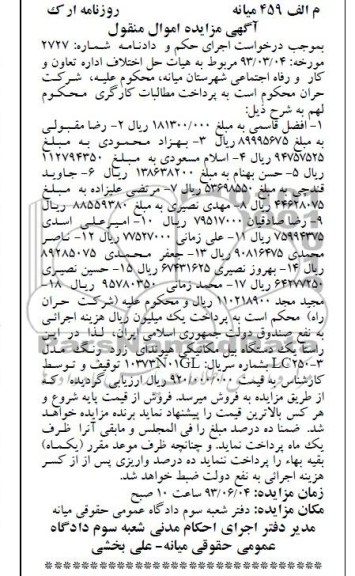 م الف ۴۵۹ میانه روزنامه ارک
آگهی مزایده اموال منقول
بموجب درخواست اجرای حکم و دادنامه شماره: ۲۷۲۷
مورخه: ۹۳/۰۳/۰۴ مربوط به هیات حل اختلاف اداره تعاون و
کار و رفاه اجتماعی شهرستان میانه، محکوم علیه، شرکت
حران محکوم است به پرداخت مطالبات کارگری محکوم
لهم به شرح ذیل:
۱- افضل قاسمی به مبلغ ۱۸۱۳۰۰/۰۰۰ ریال ۲- رضا مقبولی
به مبلغ ۸۹۹۹۵۶۷۵ ریال ۳- بهزاد محمودی به مبلغ
۹۴۷۵۷۵۲۵ ریال ۴- اسلام مسعودی به مبلغ ۱۱۲۷۹۴۳۵۰
ریال ۵- حسن بهنام به مبلغ ۱۳۸۶۳۸۲۰۰ ریال ۶- جاوید
قندچی به مبلغ ۵۳۶۹۸۵۵۰ ریال ۷- مرتضی علیزاده به مبلغ
۴۴۶۲۸۰۷۵ ریال ۸- مهدی نصیری به مبلغ ۸۸۵۵۹۳۸۰ ریال
۹- رضا صادقیان ۷۹۵۱۷۰۰۰ ریال ۱۰- امیرعلی اسدی
۷۵۹۹۴۳۷۵ ریال ۱۱- علی زمانی ۷۷۵۲۷۰۰۰ ریال ۱۲- ناصر
محمدی ۹۰۸۱۶۴۷۵ ریال ۱۳- جعفر محمدی ۸۹۲۸۵۰۷۵
ریال ۱۴- بهروز نصیری ۶۷۴۳۱۶۲۵ ریال ۱۵- حسین نصیری
۶۴۲۷۷۲۵۰ ریال ۱۷- محمد زمانی ۹۵۷۸۰۳۵۰ ریال ۱۸-
مجید مجد ۱۱۰۲۱۸۹۰۰ ریال و محکوم علیه (شرکت حران
راه) محکوم است به پرداخت یک میلیون ریال هزینه اجرائی
به نفع صندوق دولت جمهوری اسلامی ایران، لذا در این
راستا یک دستگاه بیل مکانیکی هیوندای زرد رنگ مدل
LC۲۵۰-۳ بشماره سریال: ۱۰۳۷۳N۰۱GL توقیف و توسط
کارشناس به قیمت ۹۲۰/۰۰۰/۰۰۰ ریال ارزیابی گردیده/ که
از طریق مزایده به فروش میرسد. فروش از قیمت پایه شروع و
هر کس بالاترین قیمت را پیشنهاد نماید برنده مزایده خواهد
شد. ضمنا ده درصد مبلغ را فی المجلس و مابقی آنرا ظرف
یک ماه پرداخت نماید. و چنانچه ظرف موعد مقرر (یکماه)
بقیه بهاء را پرداخت ننماید ده درصد واریزی پس از از کسر
هزینه اجرائی به نفع دولت ضبط خواهد شد.
زمان مزایده: ۹۳/۰۶/۰۴ ساعت ۱۰ صبح
مکان مزایده: دفتر شعبه سوم دادگاه عمومی حقوقی میانه
مدیر دفتر اجرای احکام مدنی شعبه سوم دادگاه
عمومی حقوقی میانه- علی بخشی